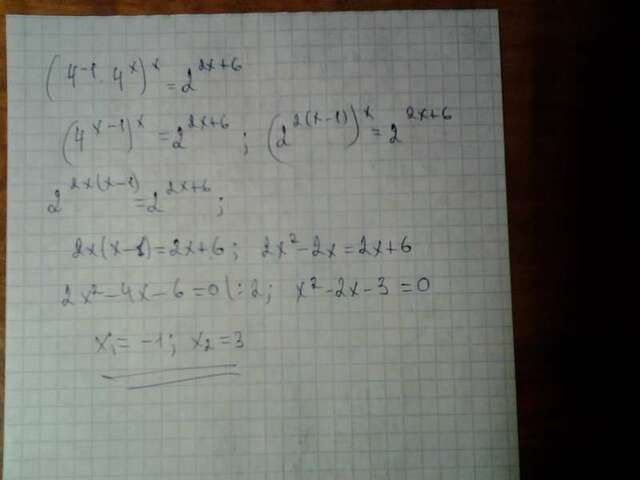 (4⁻¹ 4ˣ)ˣ = 2²ˣ⁺⁶
(4ˣ⁻¹)ˣ = 2²ˣ⁺⁶ ; (2²⁽ˣ⁻¹⁾)ˣ = 2²ˣ⁺⁶
2²ˣ⁽ˣ⁻¹⁾ = 2²ˣ⁺⁶ ;
2x(x-1) = 2x+6 ; 2x² - 2x = 2x+6
2x² - 4x - 6 = 0 | : 2 ; x² - 2x - 3 = 0
x₁ = -1 ; x₂ = 3